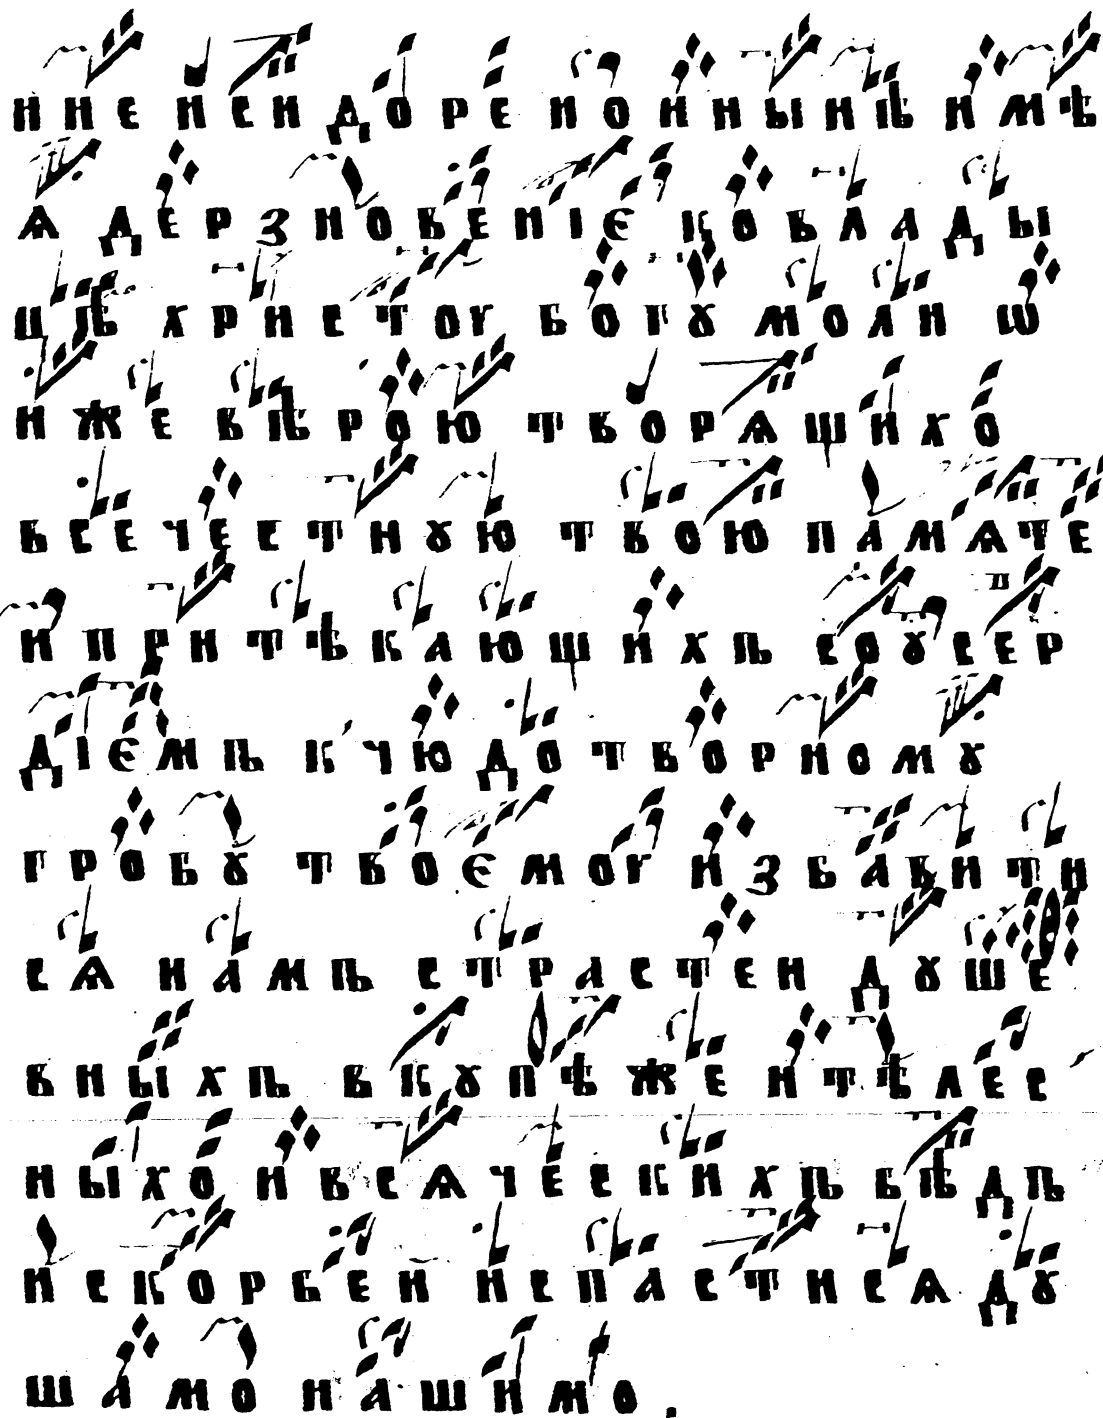 и не иси доре но и ны нѣ и мѣ
ѧ дерзновениіє ко влады
цѣ христоу богꙋ моли ѡ
иже вѣрою творѧщихо
всечестнꙋю твою памѧте
и притѣкающихъ соꙋсер
діємъ к чюдотворномꙋ
гробꙋ твоємоу избавити
сѧ намъ страстеи дꙋше
вныхъ вкꙋпѣ же и тѣлес
ныхо и всѧческихъ бѣдъ
и скорбеи и спастисѧ дꙋ
шамо нашимо.